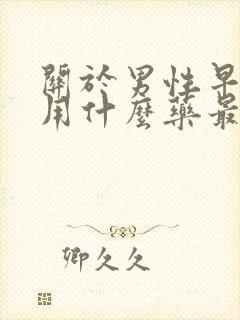 關於男性早
用什麼藥最
卿久久